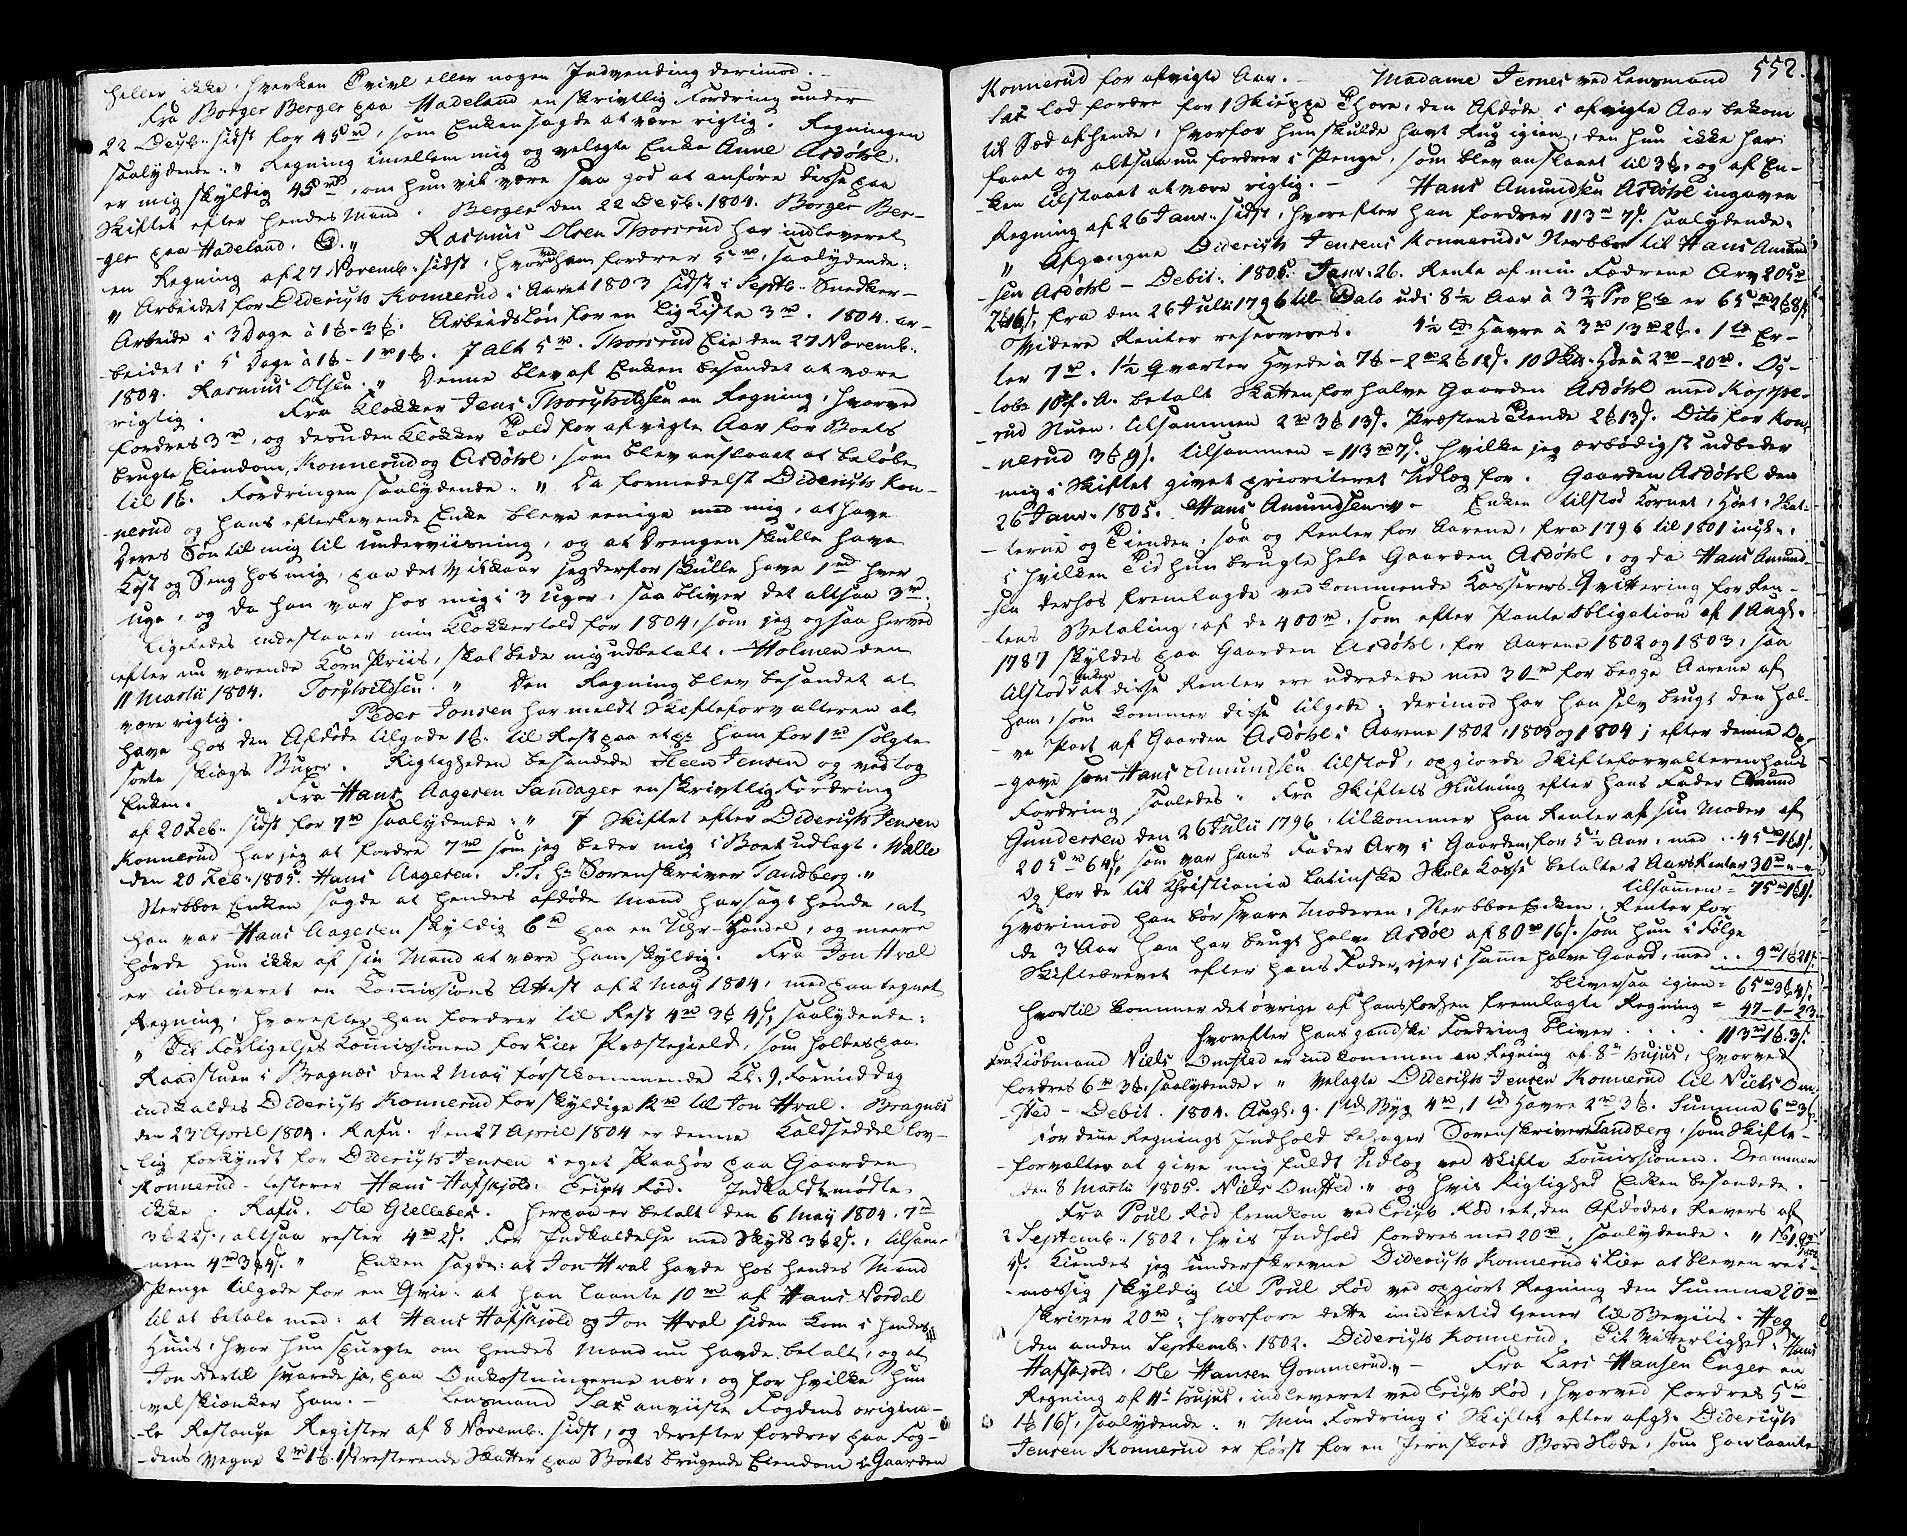 heller ikke hverken Tvivl eller nogen Indvending derimod.
Fra Borger Berger paa Hadeland en skrivtlig Fordring under
22 Decb: sidst for 45 rd, som Enken sagde at være rigtig. Regningen
saalydende: " Regning imellem mig og velagte Enke Anne Asdøhl,
er mig skyldig 45 rd, om hun vil være saa god at anføre disse paa
Skiftet efter hendes Mand. Berger den 22 Decb: 1804. Borger Ber-
ger paa Hadeland. " Rasmus Olsen Thorsrud har indleveret
en Regning af 27 Novemb: sidst, hvorved han fordrer 5 rd, saalydende:
" Arbeidet for Diderich Konnerud i Aaret 1803 sidst i Septb: Snedker-
Arbeide i 3 Dage à 1 - 3. Arbeidsløn for en Lig Kiste 3 rd. 1804. ar-
beidet i 5 Dage à 1 - 1 rd 1. I Alt 5 rd. Thorsrud Eie den 27 Novemb:
1804. Rasmus Olsen. " Denne blev af Enken besandet at være
rigtig. Fra Klokker Jens Thorchildsen en Regning, hvorved
fordres 3 rd, og desuden Klokker Told for afvigte Aar for Boets
brugte Eiendom, Konnerud og Asdøhl, som blev anslaaet at beløbe
til 1. Fordringen saalydende: " Da formedelst Diderich Kon-
nerud og hans efterlevende Enke bleve eenige med mig, at have
deres Søn til mig til underviisning, og at Drengen skulle have
Kost og Seng hos mig, paa det Vilkaar jeg derfor skulle have 1 rd hver
Uge, og da han var hos mig i 3 Uger, saa bliver det altsaa 3 rd.
Ligeledes indestaaer min Klokkertold for 1804, som jeg ogsaa herved
efter nu værende Korn Priis, skal bede mig udbetalt. Holmen den
11 Martii 1804. Torchildsen. " Den Regning blev besandet at
være rigtig. Peder Jonsen har meldt Skifteforvalteren at
have hos den Afdøde tilgode 1. til Rest paa et p: ham for 1 rd solgte
sorte skinds Buxer. Rigtigheden besandede Steen Jensen og vedtog
Enken. Fra Hans Aagesen Sandager en skrivtlig Fordring
af 20 Feb: sidst for 7 rd saalydende: " I Skiftet efter Diderich Jensen
Konnerud har jeg at fordre 7 rd som jeg beder mig i Boet udlagt. Walle
den 20 Feb: 1805. Hans Aagesen. S.T. Hr Sorenskriver Tandberg. "
Sterbboe Enken sagde at hendes afdøde Mand har sagt hende, at
han var Hans Aagesen skyldig 6 rd paa en Uhr-Handel, og meere
hørde hun ikke af sin Mand at være ham skyldig. Fra Jon Hval
er indleveret en Commissions Attest af 2 May 1804, med paategnet
Regning, hvorefter han fordrer til Rest 4 rd 3 4 s, saalydende:
" Til Forligelses Commissionen for Lier Præstegield, som holdes paa
Raadstuen i Bragnæs den 2 May førstkommende Kl: 9, Formiddag
indkaldes Diderich Konnerud for skyldige 12 rd til Jon Hval. Bragnæs
den 23 April 1804. Rafn. Den 27 April 1804 er denne Kaldseddel lov-
lig forkyndt for Diderich Jensen i eget Paahør paa Gaarden
Konnerud - testerer Hans Hafskjold. Erich Rød. Indkaldte mødte
ikke. Rafn. Ole Gielleber. Herpaa er betalt den 6 May 1804. 7 rd
3 22 s, altsaa rester 4 rd 2 s. For Indkaldelse med Skyds 3 2 s, tilsam-
men 4 rd 3 4 s. " Enken sagde: at Jon Hval havde hos hendes Mand
Penge tilgode for en Qvie: at han laante 10 rd af Hans Nordal
til at betale med: at Hans Hafskjold og Jon Hval siden kom i hendes
Huus, hvor hun spurgte om hendes Mand nu havde betalt, og at
Jon dertil svarede ja, paa Omkostningerne nær, og for hvilke hun
vel skiønker ham. - Lensmand Sax anviiste Fogdens origina-
le Restance Register af 8 Novemb: sidst, og derefter fordrer paa Fog-
dens Vegne 2 rd 1. 1 s resterende Skatter paa Boets brugende Eiendom i Gaarden
552.
Konnerud for afvigte Aar. - Madame Jernes ved Lensmand
Sax lod fordre for 1 Skieppe Thore, den Afdøde i afvigte Aar bekom
til Sæd af hende, hvorfor hun skulde havt Rug igien, den hun ikke har
faaet og altsaa nu fordrer i Penge, som blev anslaaet til 3, og af En-
ken tilstaaet at være rigtig. - Hans Amundsen Asdøhl ingaven
Regning af 26 Janr: sidst, hvorefter han fordrer 113 rd 7 s. saalydende:
" Afgangne Diderich Jensens Konneruds Sterbboe til Hans Amund-
sen Asdøhl - Debit: 1805. Janr: 26. Rente af min Fædrene Arv 205 rd
2 16 s, fra den 26 Julii 1796 til Dato udi 8½ Aar à 3¾ Pro C: er 65 rd 2 8 s.
Widere Renter reserveres. 4½ td Havre à 3 rd 13 rd 2. 1 td Er-
ter 7 rd. 1½ Qvarter Hvede à 7 - 2 rd 2 12 s. 10 Høe à 2 rd - 20 rd. Oc-
tobr 18. A. betalt Skatten for halve Gaarden Asdøhl med Koppe-
rud Nuen, tilsammen 2 rd 3 13 s. Præstens Tiende 2 13 s. Dito for Kon-
nerud 3 9 s. tilsammen = 113 rd 7 s. hvilke jeg ærbødigst udbeder
mig i Skiftet givet prioriteret Udlæg for. Gaarden Asdøhl den
26 Janr: 1805. Hans Amundsen. " - Enken tilstod Kornet, Høet, Skat-
terne og Tienden, saa og Renter for Aarene, fra 1796 til 1801 incl:,
i hvilken Tid hun brugte hele Gaarden Asdøhl, og da Hans Amund-
sen derhos fremlagde vedkommende Kasserers Qvittering for Ren-
tens Betaling, af de 400 rd, som efter Pante Obligation af 1 Augs.
1787 skyldes paa Gaarden Asdøhl, for Aarene 1802 og 1803, saa
tilstod Enken at disse Renter ere udredede med 30 rd for begge Aarene af
ham, som kommer disse tilgode; derimod har han selv brugt den hal-
ve Part af Gaarden Asdøhl i Aarene 1802, 1803 og 1804; efter denne Op-
gave som Hans Amundsen tilstod, opgiorde Skifteforvalteren hans
Fordring saaledes: Fra Skiftets Slutning efter hans Fader Amund
Gundersen den 26 Julii 1796, tilkommer han Renter af sin Moder af
205 rd 64 s, som var hans Fader Arv i Gaarden, for 5½ Aar, med .. 45 rd 1 s.
Og for de til Christiania Latinske Skole Casse betalte 2 Aars Renter 30 rd " - "
tilsamen = 75 rd 1 s.
Hvorimod han bør svare Moderen, Sterbboe Enken, Renter for
de 3 Aar han har brugt halve Asdøl af 80 rd 16 s. som hun i Følge
Skiftebrevet efter hans Fader, eier i samme halve Gaard, med .. 9 rd 1 21 s.
bliver saa igien = 65 rd 3 4 s.
hvortil kommer det øvrige af hans forhen fremlagte Regning = 47 - 1 - 23.
hvorefter hans gandske Fordring bliver .... 113 rd 1. 3 s.
Fra Kiøbmand Niels Omsted er indkommen en Regning af 8de hujus, hvorved
fordres 6 rd 3. saalydende: " Velagte Diderich Jensen Konnerud til Niels Om-
sted - Debit. 1804. Augs. 9. 1 td Byg 4 rd, 1 td Havre 2 rd 3. Summa 6 rd 3
For dette Regnings Indhold behager Sorenskriver Tandberg, som Skifte-
forvalter at give mig fuldt Udlæg ved Skifte Commissionen. Drammen
den 8 Martii 1805. Niels Omsted. " og hvis Rigtighed Enken besandede.
Fra Poul Rød fremkom ved Erich Rød, et, den Afdødes, Revers af
2 Septemb: 1802, hvis Indhold fordres med 20 rd, saalydende: "
4 s. Kiendes jeg underskrevne Diderich Konnerud i Lier at bleven ret-
mæssig skyldig til Poul Rød ved opgiort Regning den Summa 20 rd
skriver 20 rd; hvorfore dette imidlertid tiener til Beviis. Heg
den anden Septemb: 1802. Diderich Konnerud. Til Vitterlighed: Hans
Hafskjold. Ole Hansen Gommerud. " - Fra Lars Hansen Enger en
Regning af 11te hujus, indleveret ved Erich Rød, hvorved fordres 5 rd
1 16 s, saalydende: " Min Fordring i Skiftet efter afg: Diderich
Jensen Konnerud er først for en Jernskoed Bord Slæde, som han laante